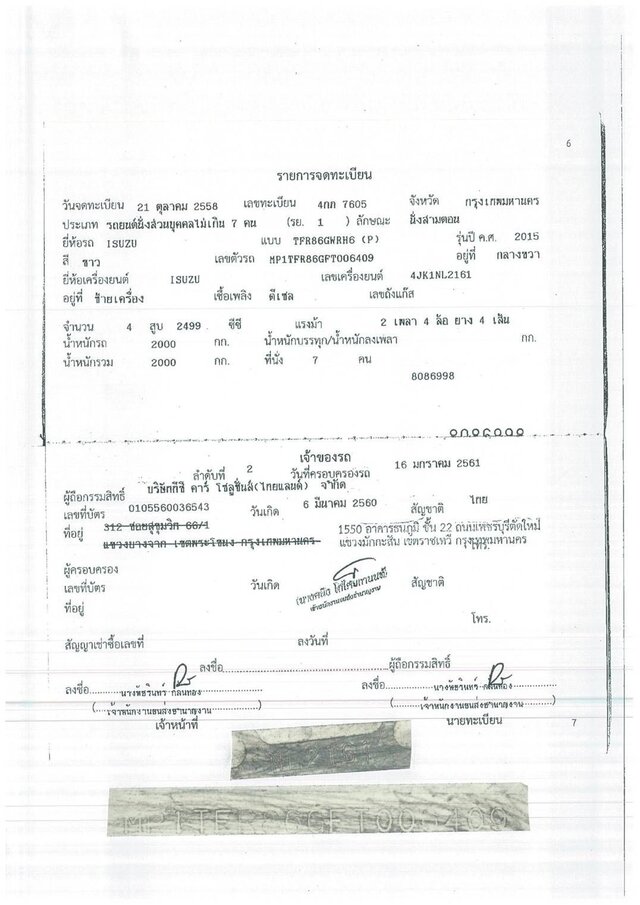 6
รายการจดทะเบียน
วันจดทะเบียน 21 ตุลาคม 2558 เลขทะเบียน 4กภ 7605 จังหวัด กรุงเทพมหานคร
ประเภท รถยนต์นั่งส่วนบุคคลไม่เกิน 7 คน (รย. 1 ) ลักษณะ นั่งสามตอน
ยี่ห้อรถ ISUZU แบบ TFR86GWRH6 (P) รุ่นปี ค.ศ. 2015
สี ขาว เลขตัวรถ MP1TFR86GFT006409 อยู่ที่ กลางขวา
ยี่ห้อเครื่องยนต์ ISUZU เลขเครื่องยนต์ 4JK1NL2161
อยู่ที่ ซ้ายเครื่อง เชื้อเพลิง ดีเซล เลขถังแก๊ส
จำนวน 4 สูบ 2499 ซีซี แรงม้า 2 เพลา 4 ล้อ ยาง 4 เส้น
น้ำหนักรถ 2000 กก. น้ำหนักบรรทุก/น้ำหนักลงเพลา กก.
น้ำหนักรวม 2000 กก. ที่นั่ง 7 คน
8086998
เจ้าของรถ
ลำดับที่ 2 วันที่ครอบครองรถ 16 มกราคม 2561
ผู้ถือกรรมสิทธิ์ บริษัทกีซี คาร์ โซลูชั่นส์(ไทยแลนด์) จำกัด
เลขที่บัตร 0105560036543 วันเกิด 6 มีนาคม 2560 สัญชาติ ไทย
ที่อยู่ 312 ซอยสุขุมวิท 66/1 1550 อาคารธนภูมิ ชั้น 22 ถนนเพชรบุรีตัดใหม่
แขวงบางจาก เขตพระโขนง กรุงเทพมหานคร แขวงมักกะสัน เขตราชเทวี กรุงเทพมหานคร
โทร.
ผู้ครอบครอง
เลขที่บัตร วันเกิด สัญชาติ
ที่อยู่
เจ้าพนักงานขนส่งชำนาญงาน
โทร.
สัญญาเช่าซื้อเลขที่ ลงวันที่
ลงชื่อ ผู้ถือกรรมสิทธิ์
ลงชื่อ นางพัชรินทร์ กลิ่นทอง ลงชื่อ นางพัชรินทร์ กลิ่นทอง
(เจ้าพนักงานขนส่งชำนาญงาน) (เจ้าพนักงานขนส่งชำนาญงาน)
เจ้าหน้าที่ นายทะเบียน
7